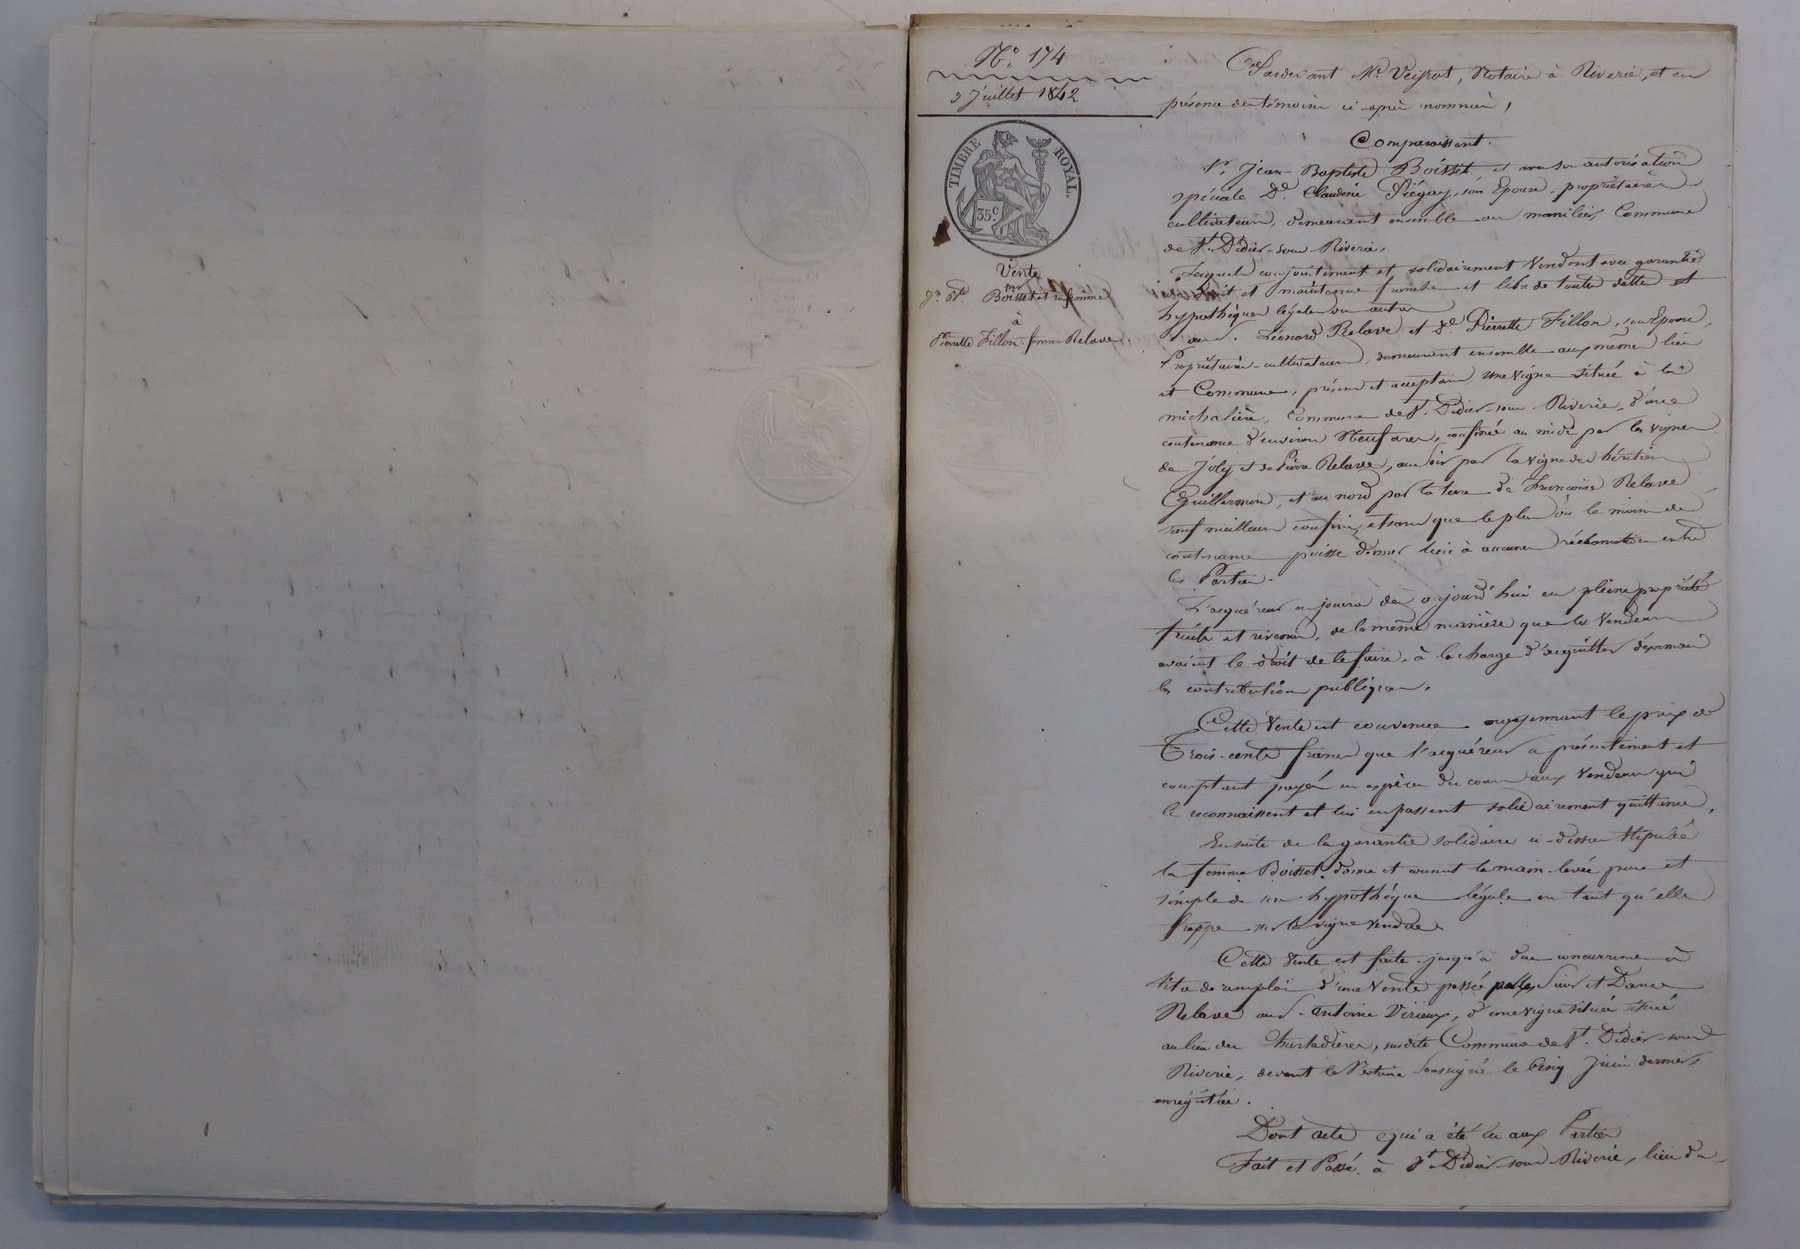 N° 174
2 Juillet 1842
TIMBRE ROYAL.
35 C
Vente
par
Jn Bte Boisset et sa femme
à
Pierrette Fillon femme Relave.
Pardevant Me Veyrat, Notaire à Riverie, et en
présence des témoins ci-après nommés,
Comparaissent.
Sr. Jean-Baptiste Boisset et avec son autorisation
spéciale De. Claudine Piégay, son Epouse, propriétaires
cultivateurs, demeurant ensemble au Commune
de St. Didier-sous-Riverie,
Lesquels conjointement et solidairement Vendent avec garantie
de droit et maintenue franche et libre de toutes dettes et
hypothèques légales ou autres
au S. Léonard Relave et De. Pierrette Fillon, son Epouse,
Propriétaires-cultivateurs, demeurant ensemble aux mêmes lieu
et Commune, présens et acceptans, une Vigne située à la
michalière, Commune de St. Didier-sous-Riverie, d'une
contenance d'environ Neuf ares, confinée au midi par les vignes
de Joly et de Pierre Relave, au soir par la vigne des héritiers
Guillermin, et au nord par la terre de Françoise Relave
sauf meilleurs confins, et sans que le plus ou le moins de
contenance puisse donner lieu à aucunes réclamations entre
les Parties.
L'acquéreur en jouira dès aujourd'hui en pleine propriété
fruits et revenus, de la même manière que les Vendeurs
avaient le droit de le faire, à la charge d'acquitter désormais
les contributions publiques.
Cette Vente est convenue moyennant le prix de
Trois-cents francs que l'acquéreur a présentement et
comptant payés en espèces du cours aux Vendeurs qui
le reconnaissent et lui en passent solidairement quittance.
Ensuite de la garantie solidaire ci-dessus stipulée
la femme Boisset donne et consent la main-levée pure et
simple de son hypothèque légale en tant qu'elle
frappe sur la vigne vendue.
Cette Vente est faite jusqu'à due concurrence à
titre de remploi d'une Vente passée par les Sieur et Dame
Relave au S. Antoine Virieux, d'une vigne située situé
au lieu des susdite Commune de St. Didier-sous
Riverie, devant le Notaire soussigné le Cinq Juin dernier,
enregistrée.
Dont acte qui a été lu aux Parties
Fait et Passé à St. Didier-sous-Riverie, lieu du